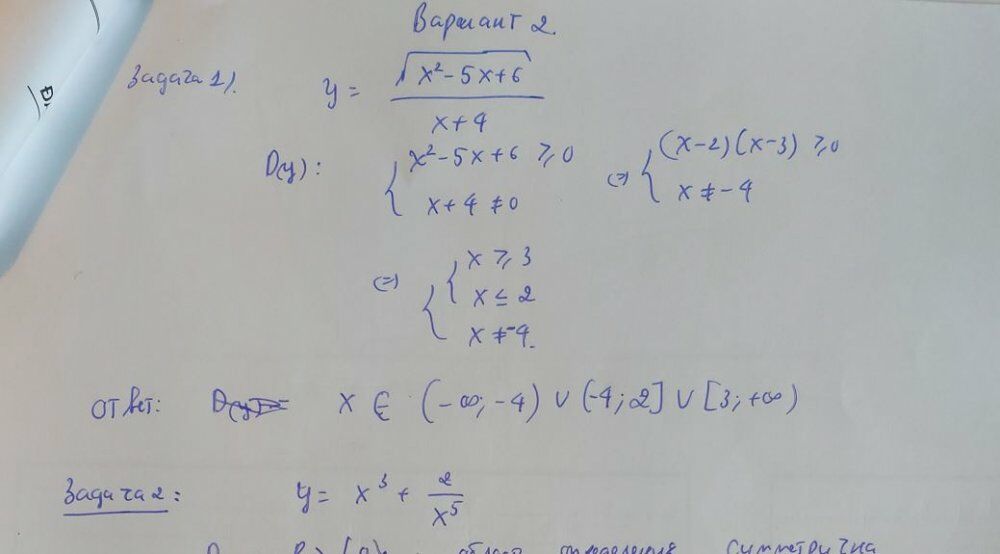 Вариант 2.
Задача 1).
y = √(x² - 5x + 6) / (x + 4)
D(y): { x² - 5x + 6 ⩾ 0 ⇔ { (x-2)(x-3) ⩾ 0
x + 4 ≠ 0 x ≠ -4
⇔ { { x ⩾ 3
x ≤ 2
x ≠ -4.
Ответ: x ∈ (-∞; -4) ∪ (-4; 2] ∪ [3; +∞)
Задача 2: y = x³ + 2/x⁵
определения симметрична